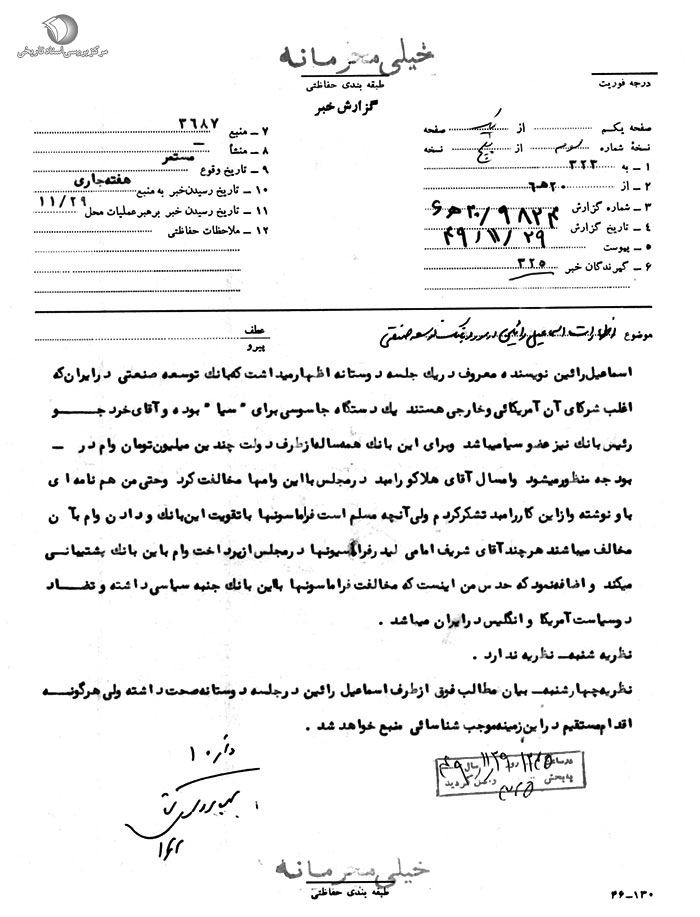 مرکز بررسی اسناد تاریخی
خیلی محرمانه
طبقه بندی حفاظتی
گزارش خبر
درجه فوریت
صفحه یکم از یک صفحه
نسخهٔ شماره سوم از پنج نسخه
۱ ـ به ۳۲۳
۲ ـ از ۲۰ﻫ۶
۳ ـ شماره گزارش ۶ﻫ۲۰/۹۸۲۴
۴ ـ تاریخ گزارش ۴۹/۱۱/۲۹
۵ ـ پیوست
۶ ـ گیرندگان خبر ۳۲۵
۷ ـ منبع ۳۶۸۷
۸ ـ منشأ ـ
۹ ـ تاریخ وقوع مستمر
۱۰ ـ تاریخ رسیدن خبر به منبع هفته جاری
۱۱ ـ تاریخ رسیدن خبر برهبر عملیات محل ۱۱/۲۹
۱۲ ـ ملاحظات حفاظتی
موضوع اظهارات اسماعیل رائین در مورد بانک توسعه صنعتی
عطف
پیرو
اسماعیل رائین نویسنده معروف در یك جلسه دوستانه اظهار میداشت که بانك توسعه صنعتی در ایران که
اغلب شرکای آن آمریکائی و خارجی هستند یك دستگاه جاسوسی برای " سیا " بوده و آقای خردجـــو
رئیس بانك نیز عضو سیا میباشد وبرای این بانك همه ساله از طرف دولت چندین میلیون تومان وام در ـ
بودجه منظور میشود و امسال آقای هلاکو رامبد در مجلس با این وامها مخالفت کرد وحتی من هم نامه ای
باو نوشته و از این کار رامبد تشکر کردم ولی آنچه مسلم است فراماسونها با تقویت این بانك و دادن وام بآن
مخالف میباشند هرچند آقای شریف امامی لیدر فراماسیونها در مجلس از پرداخت وام باین بانك پشتیبانی
میکند و اضافه نمود که حدس من اینست که مخالفت فراماسونها با این بانك جنبه سیاسی داشته و تضـاد
دوسیاست آمریکا و انگلیس در ایران میباشد .
نظریه شنبه ـ نظریه ندارد .
نظریه چهارشنبه ـ بیان مطالب فوق از طرف اسماعیل رائین در جلسه دوستانه صحت داشته ولی هرگونــه
اقدام مستقیم در این زمینه موجب شناسائی منبع خواهد شد .
در ساعت ۱۲۴۵ روز ۱۱/۲۹ سال ۴۹
به بخش گردید
۱۰
۱۶۲
خیلی محرمانه
طبقه بندی حفاظتی
۴۶ـ۱۳۰